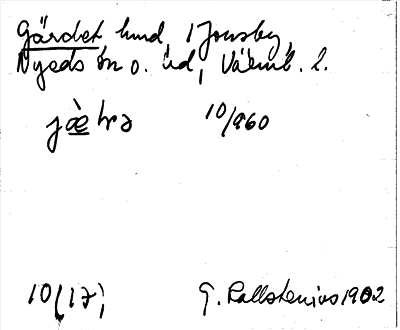 Gärdet hmd, 1 Jonsby,
Nyeds sn o. hd, Värml. l.
jæ̀tra 10/960
10(17; G. Kallstenius 1902